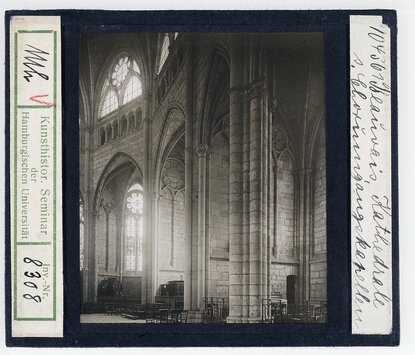 Kunsthistor. Seminar
der
Hamburgischen Universität
Inv.-Nr.
8308
Beauvais, Kathedrale
s. Chorumgangskapellen